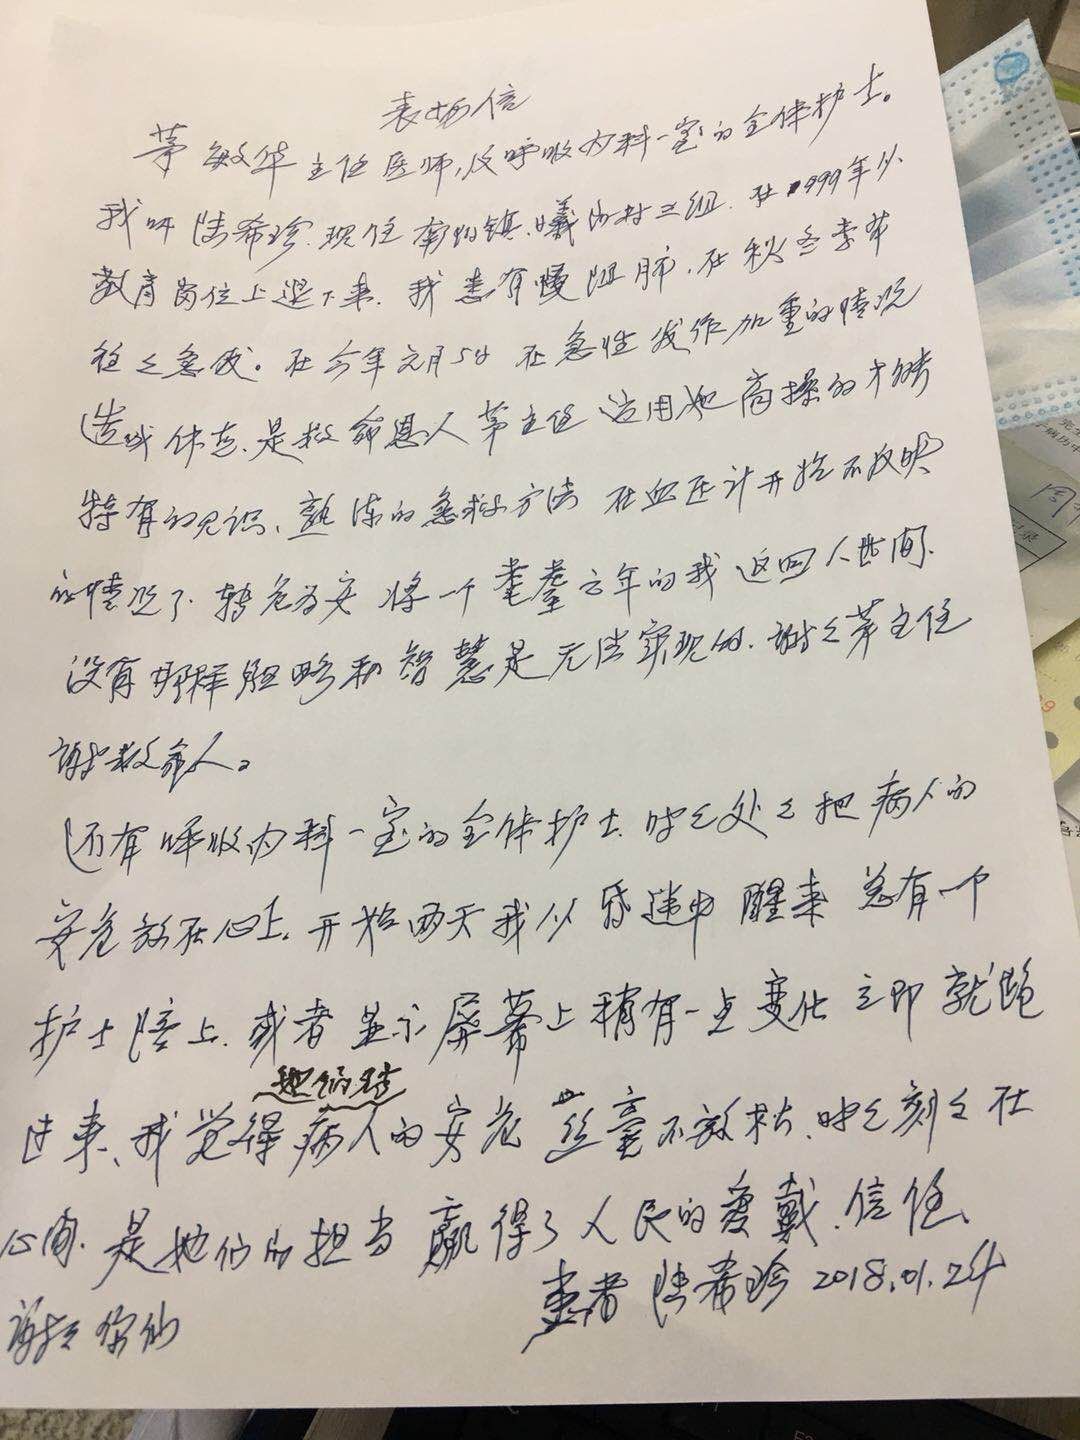 表扬信
茅敏华主任医师,及呼吸内科一室的全体护士。
我叫陆希珍.现住 镇. 村三组.在1999年从
教育岗位上退下来.我患有慢阻肺,在秋冬季节
往々急救。在今年元月5日在急性发作加重的情况
造成休克.是救命恩人茅主任运用她高操的才能
特有的见识、熟练的急救方法在血压计开始不反映
的情况下.转危为安将一个耄耋之年的我返回人世间.
没有那样胆略和智慧是无法实现的.谢々茅主任
谢救命人。
还有呼吸内科一室的全体护士.时々处々把病人的
安危放在心上.开始两天我从昏迷中醒来总有一个
护士陪上.或者显示屏幕上稍有一点变化立即就跑
过来、我觉得她们对病人的安危丝毫不放松.时々刻々在
心间.是她们的担当赢得了人民的爱戴.信任、
谢々你们
患者陆希珍2018.01.24